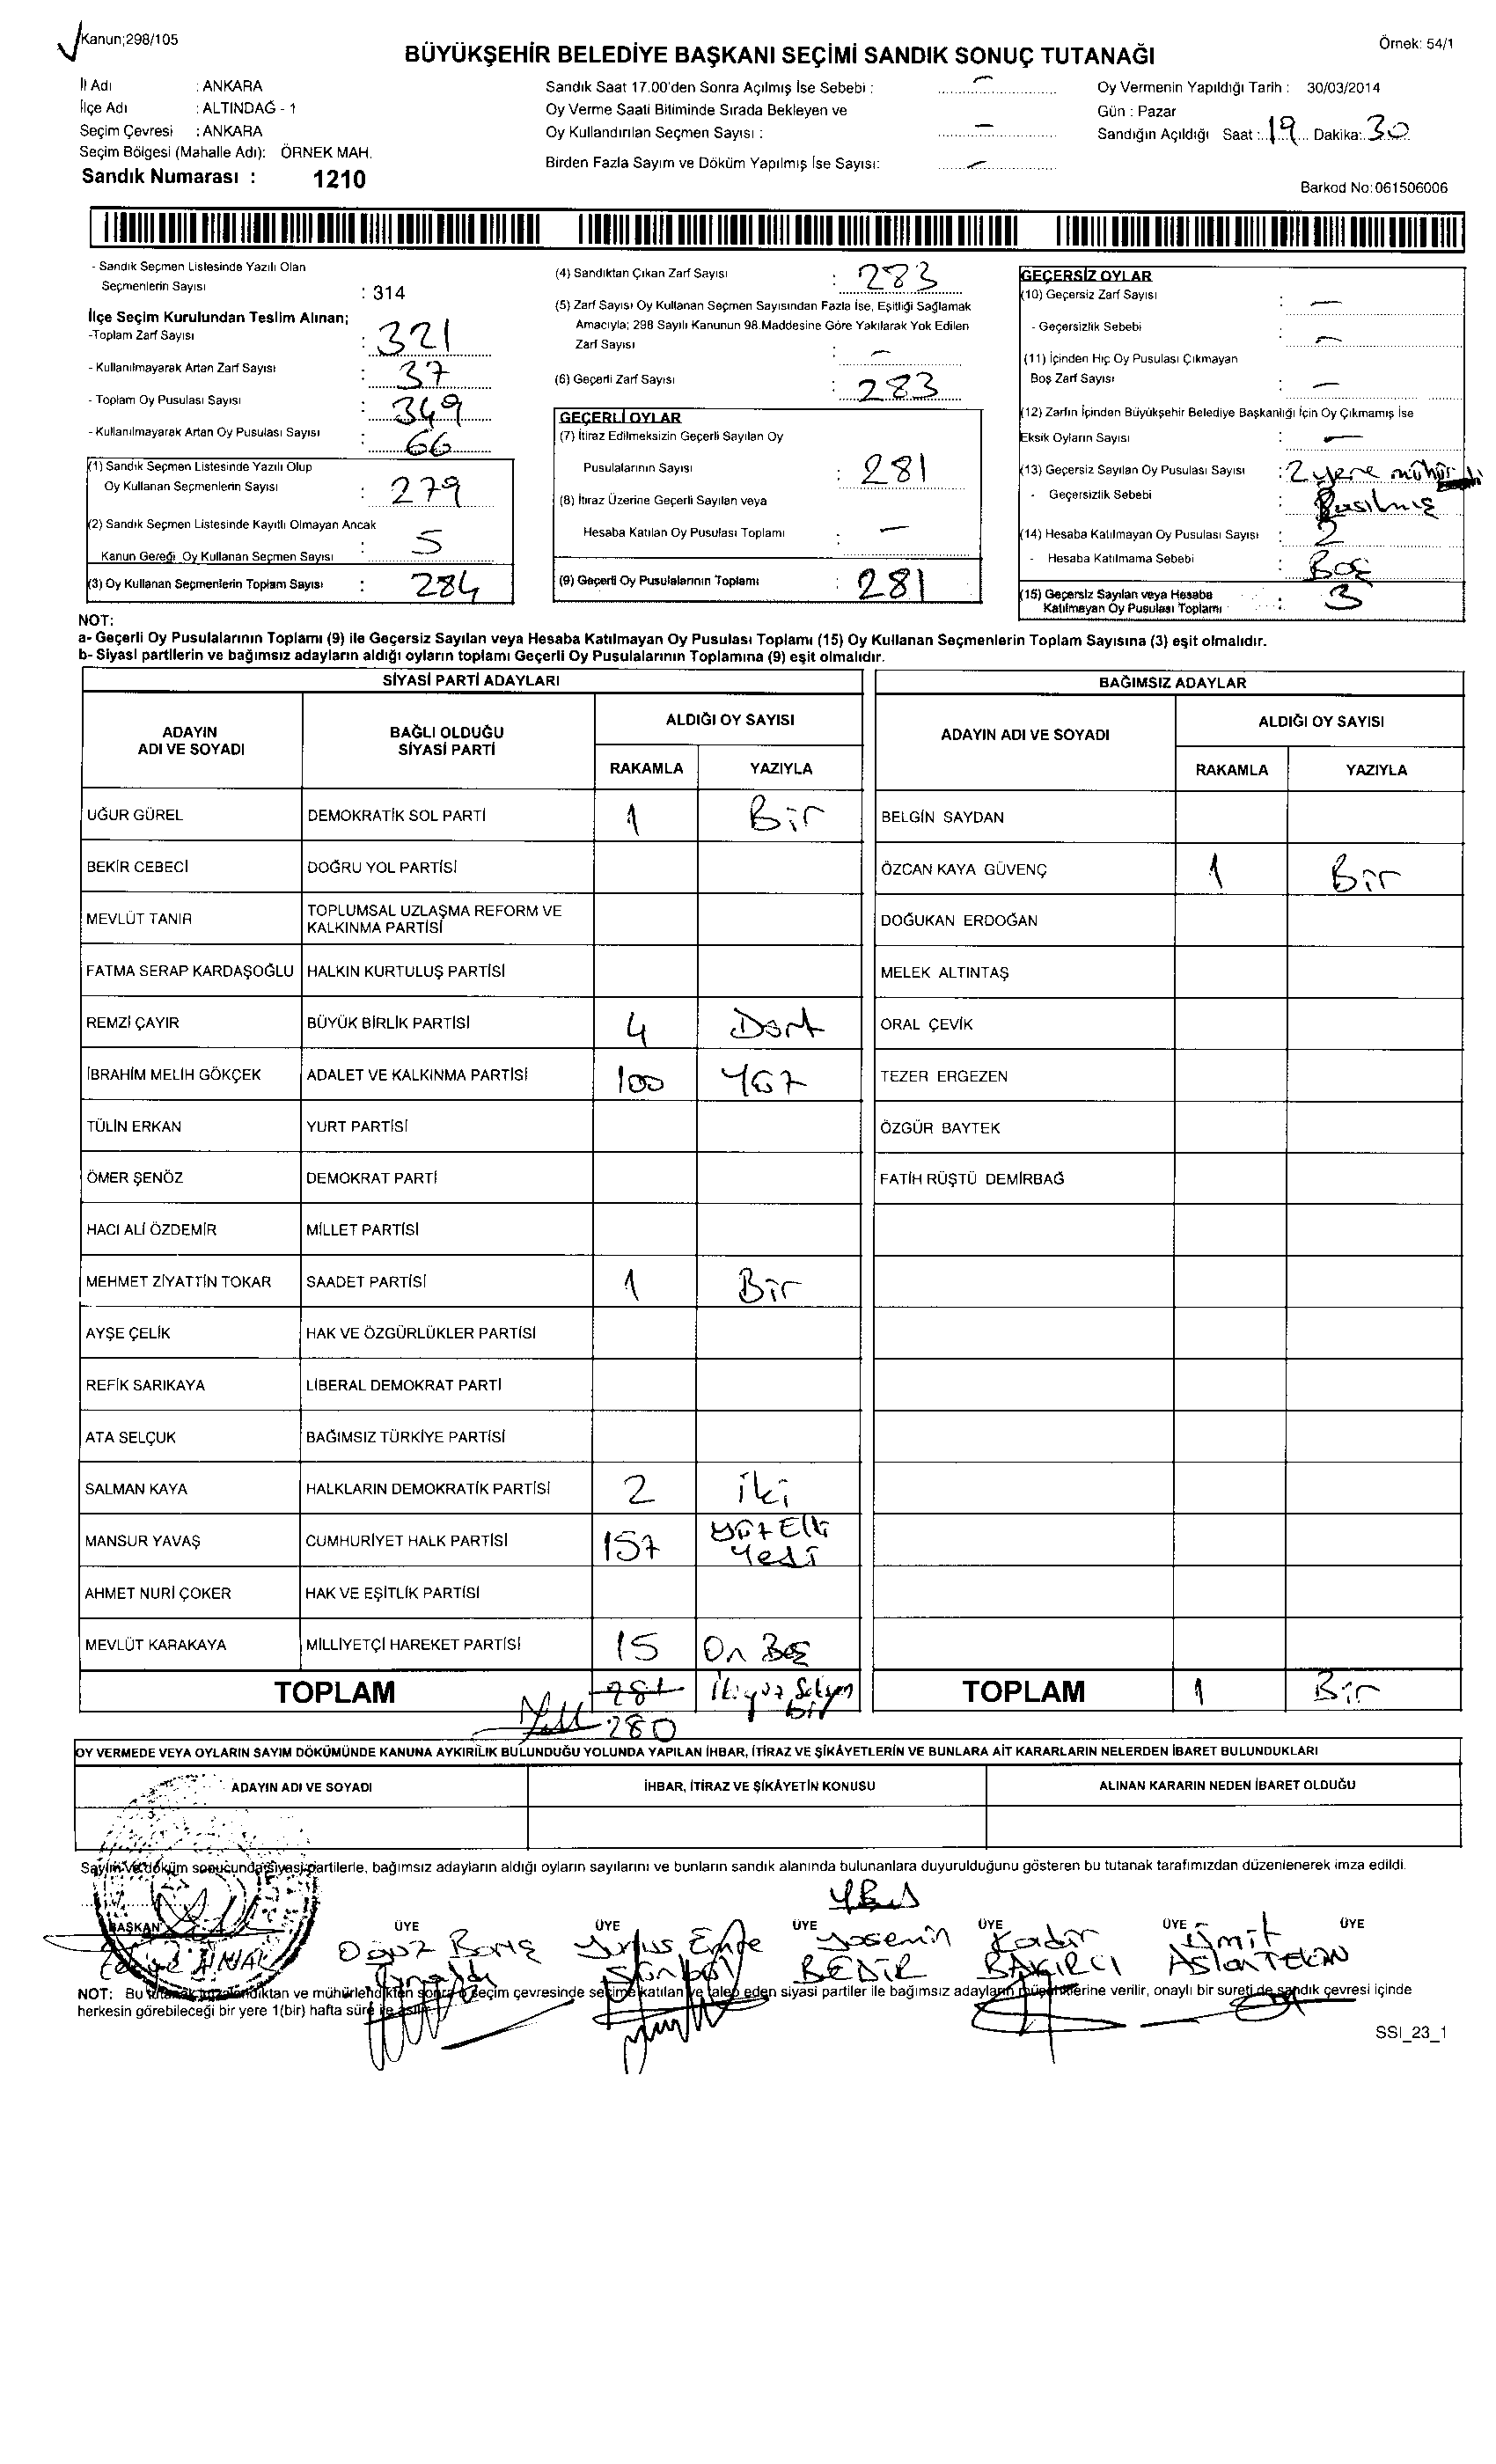 Kanun;298/105
Örnek: 54/1
BÜYÜKŞEHİR BELEDİYE BAŞKANI SEÇİMİ SANDIK SONUÇ TUTANAĞI
İl Adı : ANKARA
İlçe Adı : ALTINDAĞ - 1
Seçim Çevresi : ANKARA
Seçim Bölgesi (Mahalle Adı): ÖRNEK MAH.
Sandık Numarası : 1210
Sandık Saat 17.00'den Sonra Açılmış İse Sebebi : —
Oy Verme Saati Bitiminde Sırada Bekleyen ve
Oy Kullandırılan Seçmen Sayısı : —
Birden Fazla Sayım ve Döküm Yapılmış İse Sayısı: —
Oy Vermenin Yapıldığı Tarih : 30/03/2014
Gün : Pazar
Sandığın Açıldığı Saat : 19 Dakika: 30
Barkod No:061506006
- Sandık Seçmen Listesinde Yazılı Olan
Seçmenlerin Sayısı : 314
İlçe Seçim Kurulundan Teslim Alınan;
-Toplam Zarf Sayısı : 321
- Kullanılmayarak Artan Zarf Sayısı : 37
- Toplam Oy Pusulası Sayısı : 349
- Kullanılmayarak Artan Oy Pusulası Sayısı : 66
(1) Sandık Seçmen Listesinde Yazılı Olup
Oy Kullanan Seçmenlerin Sayısı : 279
(2) Sandık Seçmen Listesinde Kayıtlı Olmayan Ancak
Kanun Gereği Oy Kullanan Seçmen Sayısı : 5
(3) Oy Kullanan Seçmenlerin Toplam Sayısı : 284
(4) Sandıktan Çıkan Zarf Sayısı : 283
(5) Zarf Sayısı Oy Kullanan Seçmen Sayısından Fazla İse, Eşitliği Sağlamak
Amacıyla; 298 Sayılı Kanunun 98.Maddesine Göre Yakılarak Yok Edilen
Zarf Sayısı : —
(6) Geçerli Zarf Sayısı : 283
GEÇERLİ OYLAR
(7) İtiraz Edilmeksizin Geçerli Sayılan Oy
Pusulalarının Sayısı : 281
(8) İtiraz Üzerine Geçerli Sayılan veya
Hesaba Katılan Oy Pusulası Toplamı : —
(9) Geçerli Oy Pusulalarının Toplamı : 281
GEÇERSİZ OYLAR
(10) Geçersiz Zarf Sayısı : —
- Geçersizlik Sebebi : —
(11) İçinden Hiç Oy Pusulası Çıkmayan
Boş Zarf Sayısı : —
(12) Zarfın İçinden Büyükşehir Belediye Başkanlığı İçin Oy Çıkmamış İse
Eksik Oyların Sayısı : —
(13) Geçersiz Sayılan Oy Pusulası Sayısı : 2 yere mühür
- Geçersizlik Sebebi : Basılmış
(14) Hesaba Katılmayan Oy Pusulası Sayısı : 2
- Hesaba Katılmama Sebebi : Boş
(15) Geçersiz Sayılan veya Hesaba
Katılmayan Oy Pusulası Toplamı : 3
NOT:
a- Geçerli Oy Pusulalarının Toplamı (9) ile Geçersiz Sayılan veya Hesaba Katılmayan Oy Pusulası Toplamı (15) Oy Kullanan Seçmenlerin Toplam Sayısına (3) eşit olmalıdır.
b- Siyasi partilerin ve bağımsız adayların aldığı oyların toplamı Geçerli Oy Pusulalarının Toplamına (9) eşit olmalıdır.
SİYASİ PARTİ ADAYLARI
ADAYIN ADI VE SOYADI BAĞLI OLDUĞU SİYASİ PARTİ ALDIĞI OY SAYISI
RAKAMLA YAZIYLA
UĞUR GÜREL DEMOKRATİK SOL PARTİ 1 Bir
BEKİR CEBECİ DOĞRU YOL PARTİSİ
MEVLÜT TANIR TOPLUMSAL UZLAŞMA REFORM VE
KALKINMA PARTİSİ
FATMA SERAP KARDAŞOĞLU HALKIN KURTULUŞ PARTİSİ
REMZİ ÇAYIR BÜYÜK BİRLİK PARTİSİ 4 Dört
İBRAHİM MELİH GÖKÇEK ADALET VE KALKINMA PARTİSİ 100 Yüz
TÜLİN ERKAN YURT PARTİSİ
ÖMER ŞENÖZ DEMOKRAT PARTİ
HACI ALİ ÖZDEMİR MİLLET PARTİSİ
MEHMET ZİYATTİN TOKAR SAADET PARTİSİ 1 Bir
AYŞE ÇELİK HAK VE ÖZGÜRLÜKLER PARTİSİ
REFİK SARIKAYA LİBERAL DEMOKRAT PARTİ
ATA SELÇUK BAĞIMSIZ TÜRKİYE PARTİSİ
SALMAN KAYA HALKLARIN DEMOKRATİK PARTİSİ 2 İki
MANSUR YAVAŞ CUMHURİYET HALK PARTİSİ 157 Yüz Elli
Yedi
AHMET NURİ ÇOKER HAK VE EŞİTLİK PARTİSİ
MEVLÜT KARAKAYA MİLLİYETÇİ HAREKET PARTİSİ 15 On Beş
TOPLAM 281 İkiyüz Seksen
bir
280
BAĞIMSIZ ADAYLAR
ADAYIN ADI VE SOYADI ALDIĞI OY SAYISI
RAKAMLA YAZIYLA
BELGİN SAYDAN
ÖZCAN KAYA GÜVENÇ 1 Bir
DOĞUKAN ERDOĞAN
MELEK ALTINTAŞ
ORAL ÇEVİK
TEZER ERGEZEN
ÖZGÜR BAYTEK
FATİH RÜŞTÜ DEMİRBAĞ
TOPLAM 1 Bir
OY VERMEDE VEYA OYLARIN SAYIM DÖKÜMÜNDE KANUNA AYKIRILIK BULUNDUĞU YOLUNDA YAPILAN İHBAR, İTİRAZ VE ŞİKÂYETLERİN VE BUNLARA AİT KARARLARIN NELERDEN İBARET BULUNDUKLARI
ADAYIN ADI VE SOYADI İHBAR, İTİRAZ VE ŞİKÂYETİN KONUSU ALINAN KARARIN NEDEN İBARET OLDUĞU
Sayım ve döküm sonucunda siyasi partilerle, bağımsız adayların aldığı oyların sayılarını ve bunların sandık alanında bulunanlara duyurulduğunu gösteren bu tutanak tarafımızdan düzenlenerek imza edildi.
BAŞKAN ÜYE ÜYE ÜYE ÜYE ÜYE ÜYE
Oğuz Barış Yunus Emre Yasemin Kadir Ümit
BEDİR BAKIRCI
NOT: Bu tutanak imzalandıktan ve mühürlendikten sonra seçim çevresinde seçime katılan ve talep eden siyasi partiler ile bağımsız adayların müşahitlerine verilir, onaylı bir sureti de sandık çevresi içinde
herkesin görebileceği bir yere 1(bir) hafta süre ile asılır.
SSI_23_1